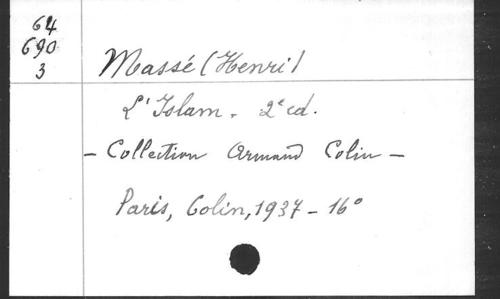 64
690
3
Massé (Henri)
L'Islam. 2e ed.
- Collection Armand Colin -
Paris, Colin, 1937 - 16°